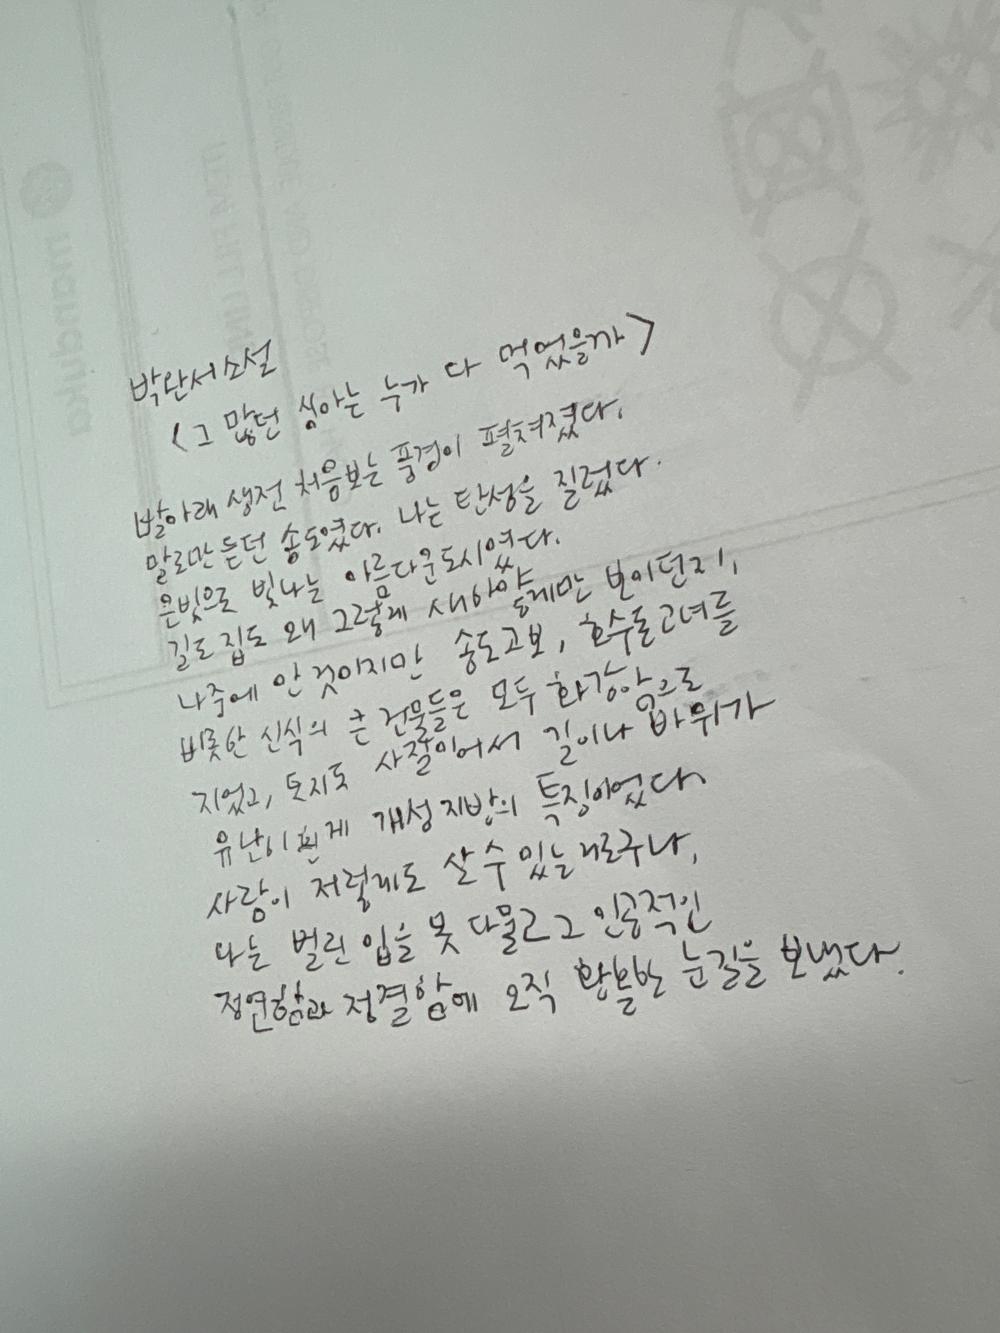 박완서소설
<그 많던 싱아는 누가 다 먹었을까>
발아래 생전 처음보는 풍경이 펼쳐졌다.
말로만 듣던 송도였다. 나는 탄성을 질렀다.
은빛으로 빛나는 아름다운도시였다.
길도 집도 왜 그렇게 새하얗
게만 보이던지,
나중에 안 것이지만 송도고보, 호수돈고녀를
비롯한 신식의 큰 건물들은 모두 화강암으로
지었고, 토지도 사질이어서 길이나 바위가
유난히 흰게 개성지방의 특징이었다.
사람이 저렇게도 살 수 있는 거로구나,
나는 벌린 입을 못 다물고 그 인공적인
정연함과 정결함에 오직 황홀한 눈길을 보냈다.
manduka